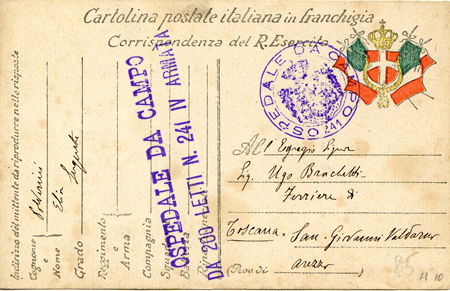 Cartolina postale italiana in franchigia
Corrispondenza del R. Esercito
Indirizzo del mittente da riprodurre nelle risposte
Cognome
e
Nome
Elia
Grado
Sergente
Reggimento
e
Arma
Compagnia
Squad
Batteria
OSPEDALE DA CAMPO
DA 200 LETTI N. 241 IV ARMATA
OSPEDALE DA CAMPO
241
All' Egregio Signor
Sig. Ugo Brachetti
Ferriere di
Toscana - San Giovanni Valdarno
(Prov. di Arezzo)
85